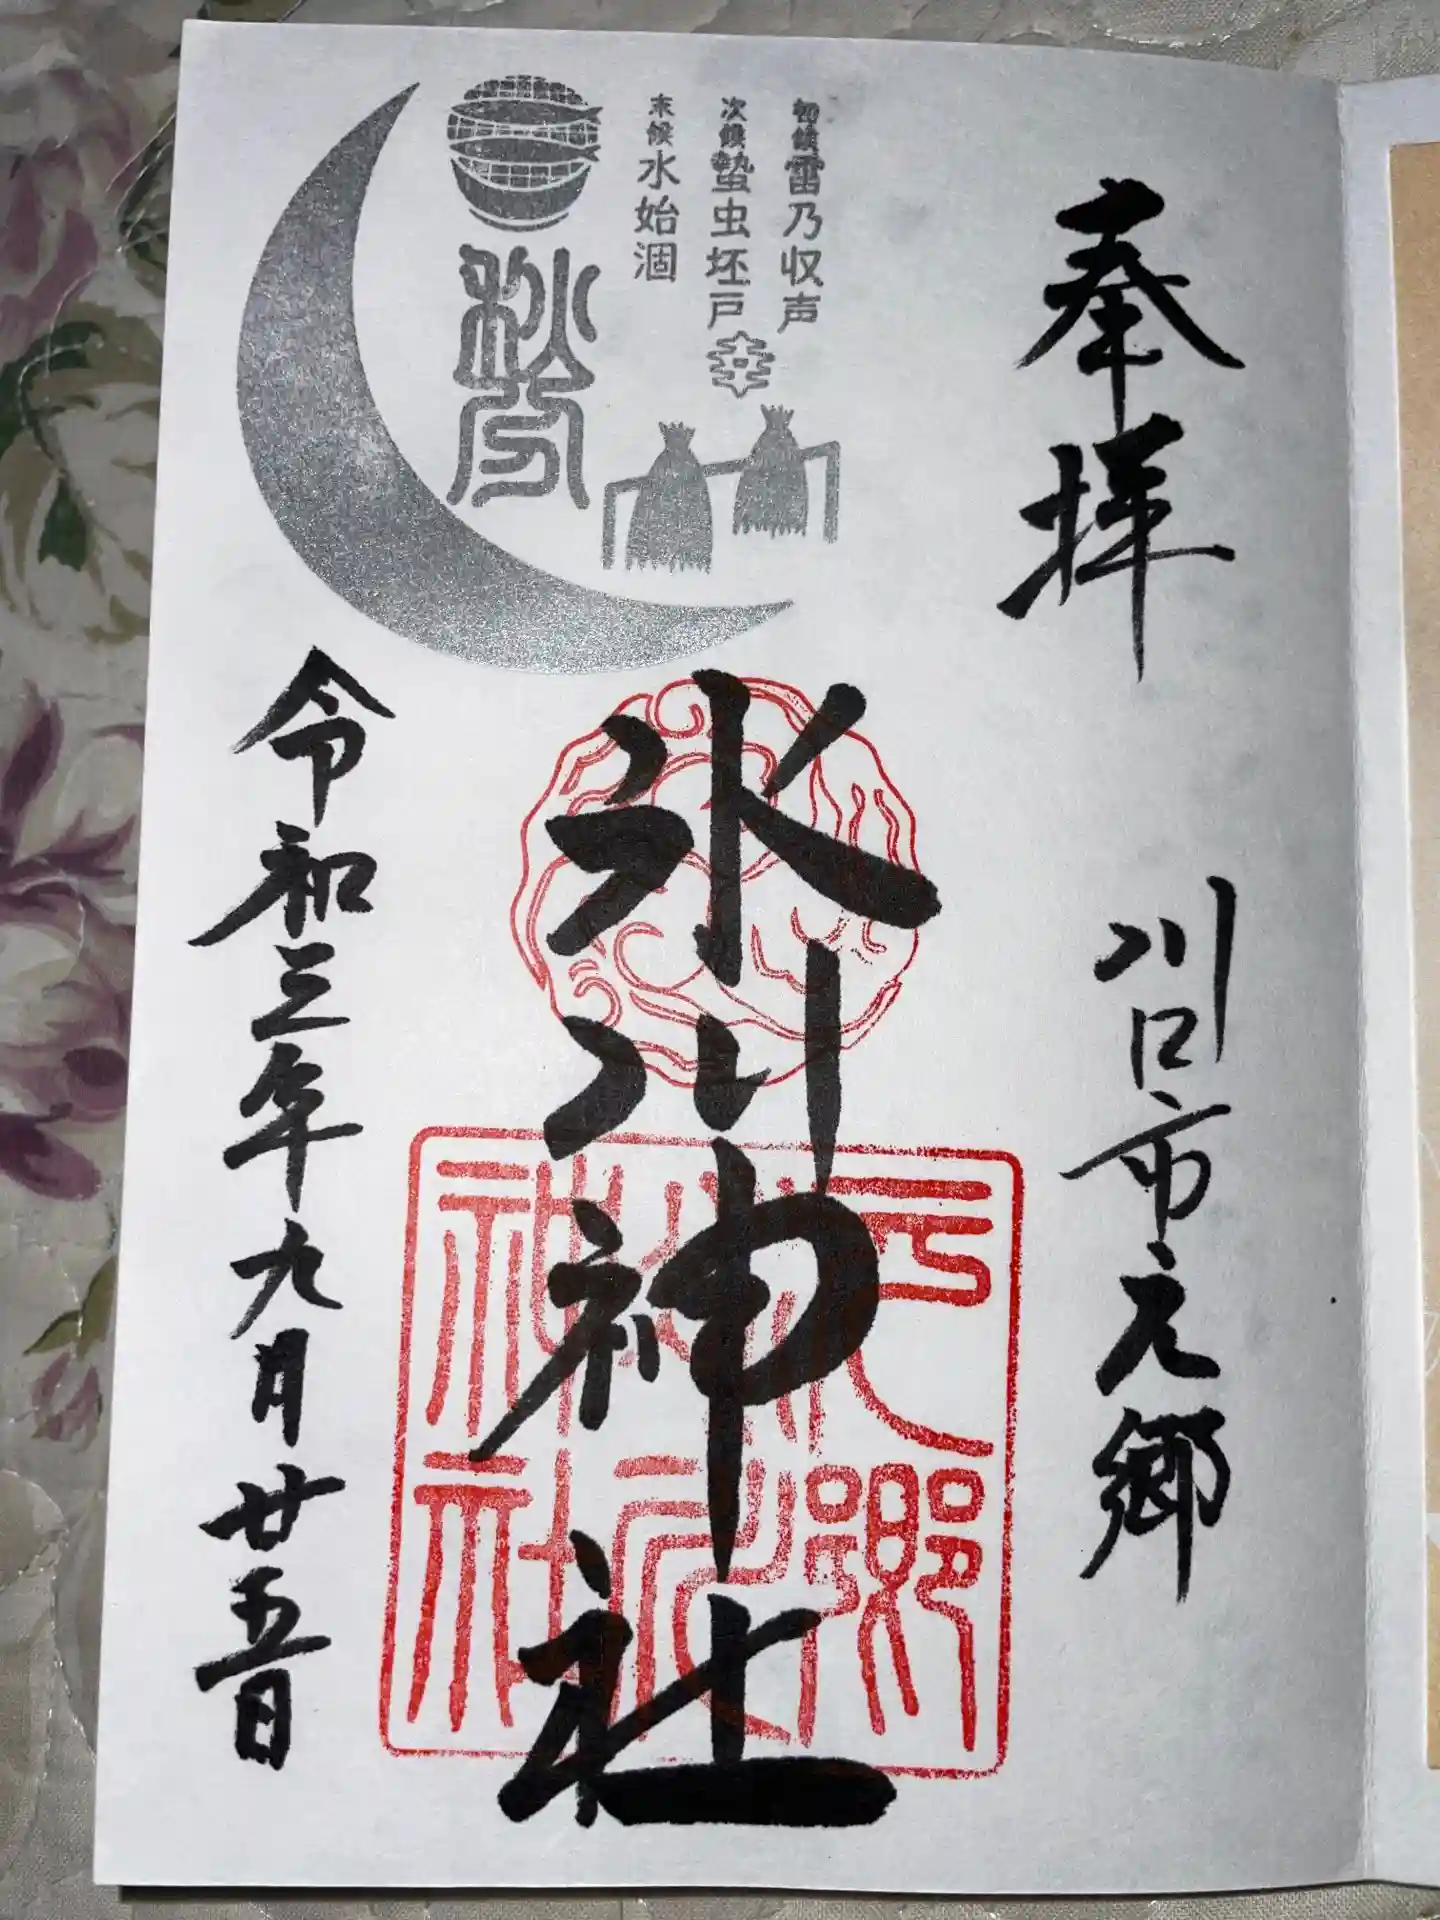 奉拝
川口市元郷
初候 雷乃収声
次候 蟄虫坯戸
末候 水始涸
秋分
氷川神社
元郷
氷川
神社
令和三年九月廿五日